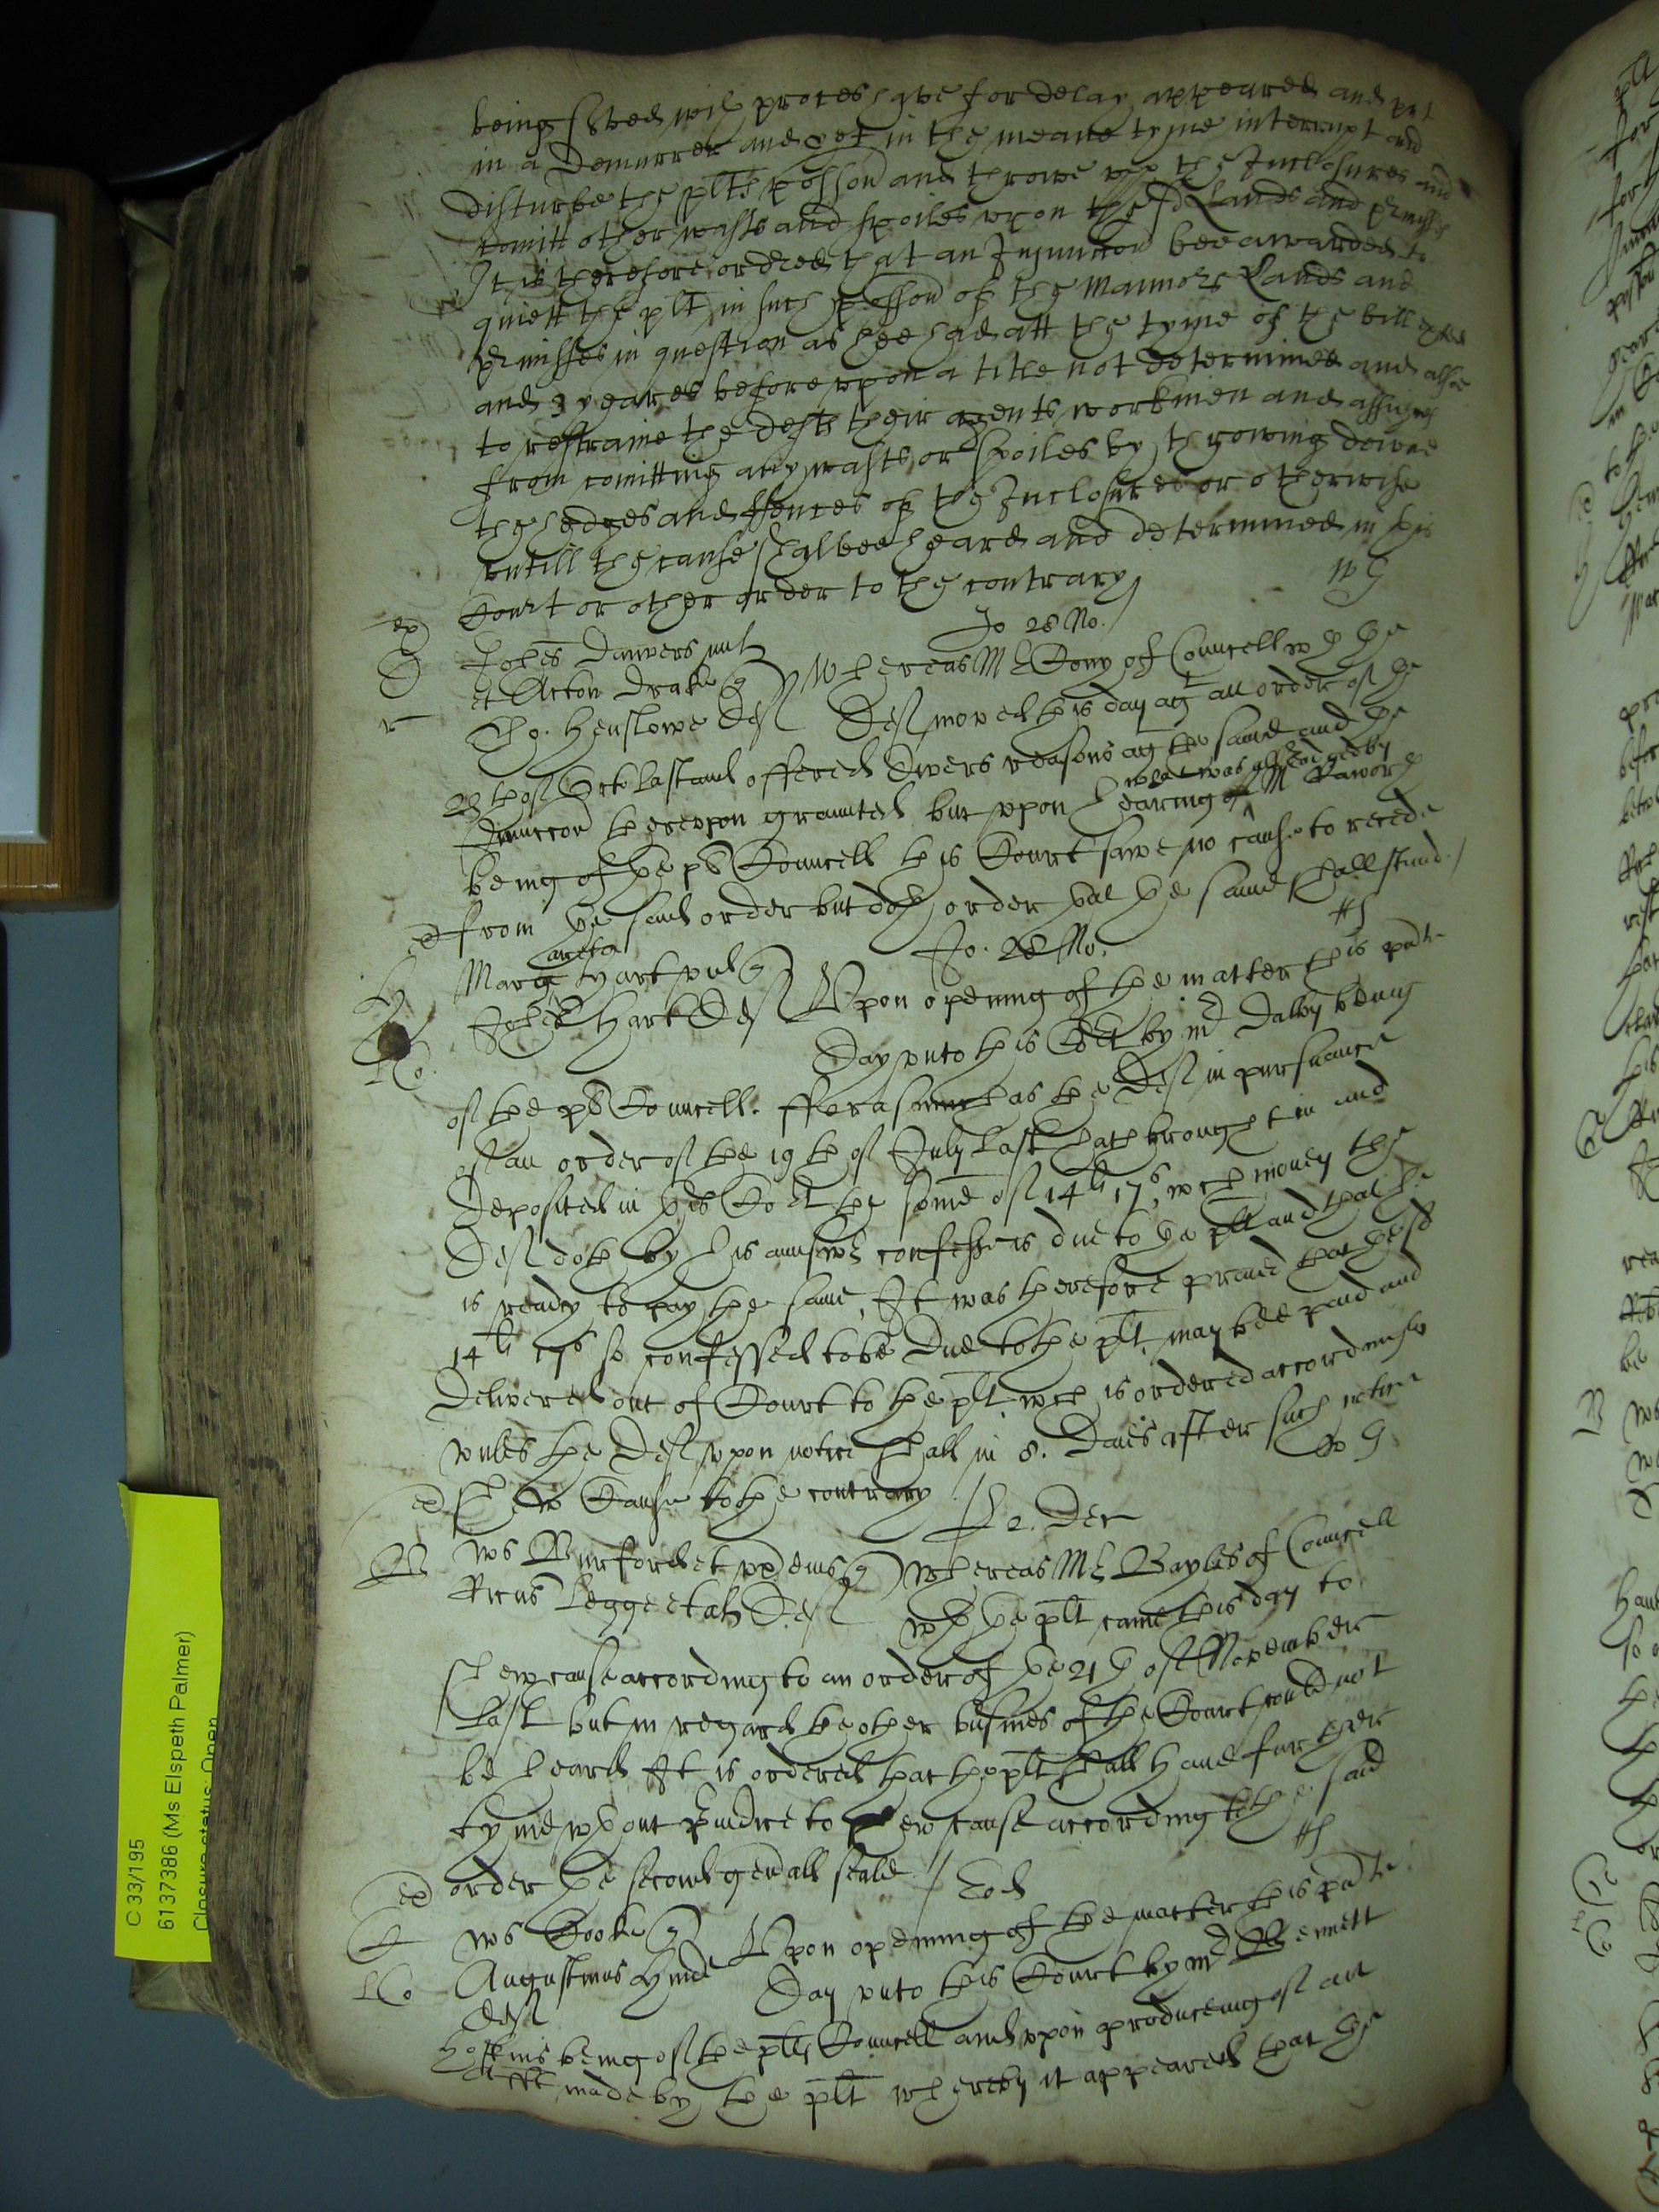 being served with proces have for delay appeared and put
in a Demurrer and yet in the meane tyme interrupt and
disturbe the plts possion and throwe upp the Inclosures and
comitt other wasts and spoiles upon the sd Lands and premisses
It is therefore ordred that an Iniunction bee awarded to
quiett the plt in such possion of the Mannors Lands and
premisses in question as hee had att the tyme of the bill
and 3 yeares before upon a title not determined and alsoe
to restraine the defts their agents workmen and assignes
from comitting any wasts or spoiles by throwing downe
the hedges and ffences of the Inclosures or otherwise
untill the cause shalbee heard and determined in this
Court or other order to the contrary
Jo 28 No.
Johes Danvers mil
et Acton Drake
Tho. Henslowe Def
Whereas Mr Cony of Councell wth the
Def moved this day agt an order of the
23 th of Octo last and offered divers reasons agt the same and the
Iniuncon thereupon graunted but upon hearing of what was alledged by Mr
being of the pts Councell this Court sawe no cause to recede
from the said order but doth order that the same shall stand
Jo. 28 No.
Margareta Hart
Johes Hart Def
Upon opening of the matter this pnte
Day unto this Cort by Mr Dalby being
of the pts Councell. fforasmuch as the Def in pursuance
of an order of the 19 th of July last hath brought in and
deposited in this Cort the some of 14 li 17 s, wch money the
Def doth by his answer confesse is due to the plt and that he
is ready to pay the same, It was therefore praied that the sd
14 li 17 s so confessed to be due to the plt may bee paid and
delivered out of Court to the plt wch is ordered accordingly
unles the Def upon notice shall in 8. Daies after such notice
shew Cause to the contrary
po. Dec
Ws Burford et
Ricus Legge et als Def
Whereas Mr Bayles of Councell
wth the plt came this day to
shew cause according to an order of the 21 th of November
last but in regard the other busines of the Court could not
be heard It is ordered that the plt shall have further
tyme wthout Preiudice to shew cause according to the said
order the second generall seale / Eod
Ws Cooke
Augustinus Hynde
Def
Upon opening of the matter this pnte
Day unto this Court by Mr Bennett
Hoskins being of the plts Councell and upon produceing of an
afft made by the plt whereby it appeared that the
C 33/195
6137386 (Ms Elspeth Palmer)
Closure status: Open